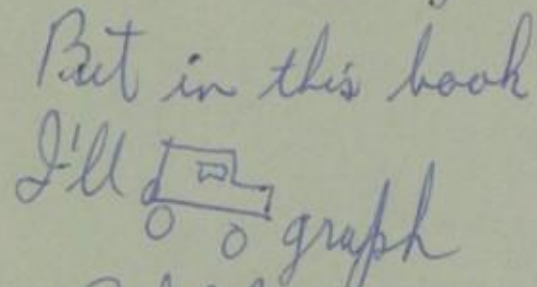 But in this book
I'll graph